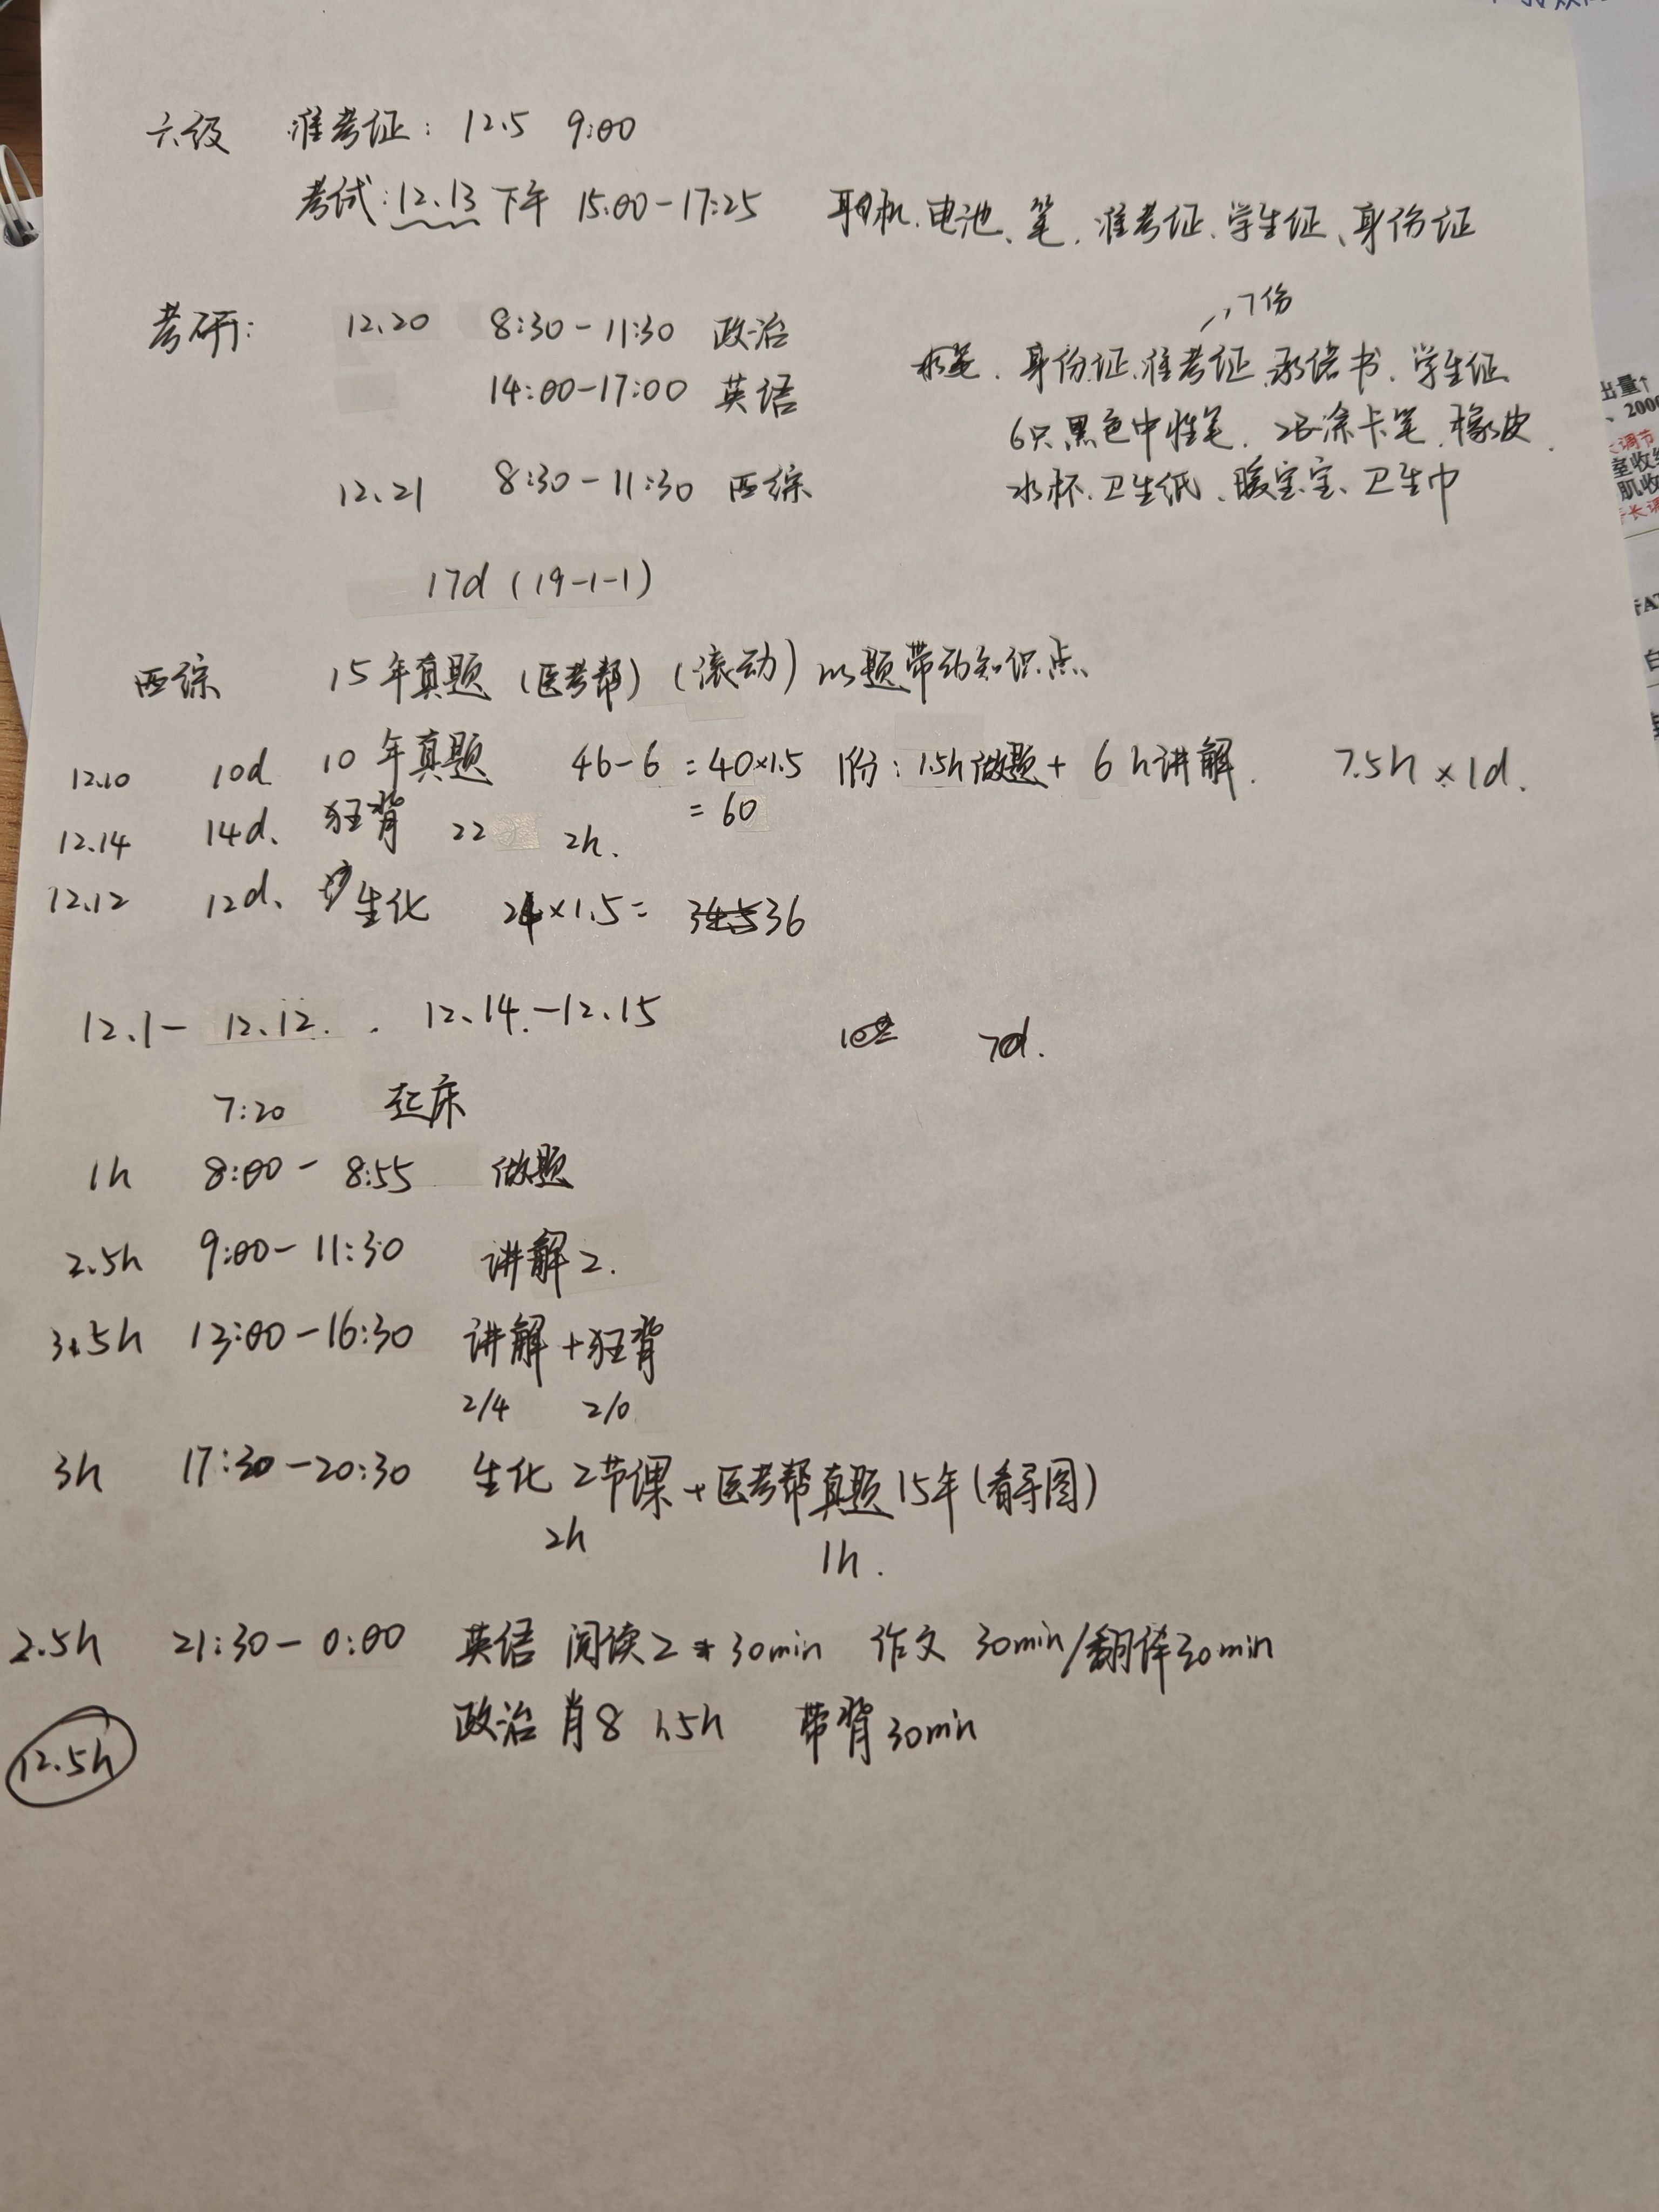 六级 准考证: 12.5 9:00
考试:12.13 下午 15:00-17:25 耳机、电池、笔、准考证、学生证、身份证
7份
考研: 12.20 8:30-11:30 政治
身份证、准考证、承诺书、学生证
14:00-17:00 英语
6只黑色中性笔、2B涂卡笔、橡皮、
12.21 8:30-11:30 西综
水杯、卫生纸、暖宝宝、卫生巾
17d (19-1-1)
西综 15年真题(医考帮)(滚动)以题带动知识点
12.10 10d 10年真题 46-6=40×1.5 1份:1.5h做题+6h讲解. 7.5h×1d.
=60
12.14 14d、狂背 22 2h.
12.12 12d、生化 24×1.5= 36
12.1-12.12. . 12.14.-12.15
7d.
7:20 起床
1h 8:00-8:55 做题
2.5h 9:00-11:30 讲解2.
3.5h 13:00-16:30 讲解+狂背
2/4 2/0
3h 17:30-20:30 生化 2节课+医考帮真题15年(看导图)
2h 1h.
2.5h 21:30-0:00 英语 阅读2*30min 作文 30min/翻译30min
政治 肖8 1.5h 带背30min
12.5h
出量↑
、200
调节
室收
肌收
长调